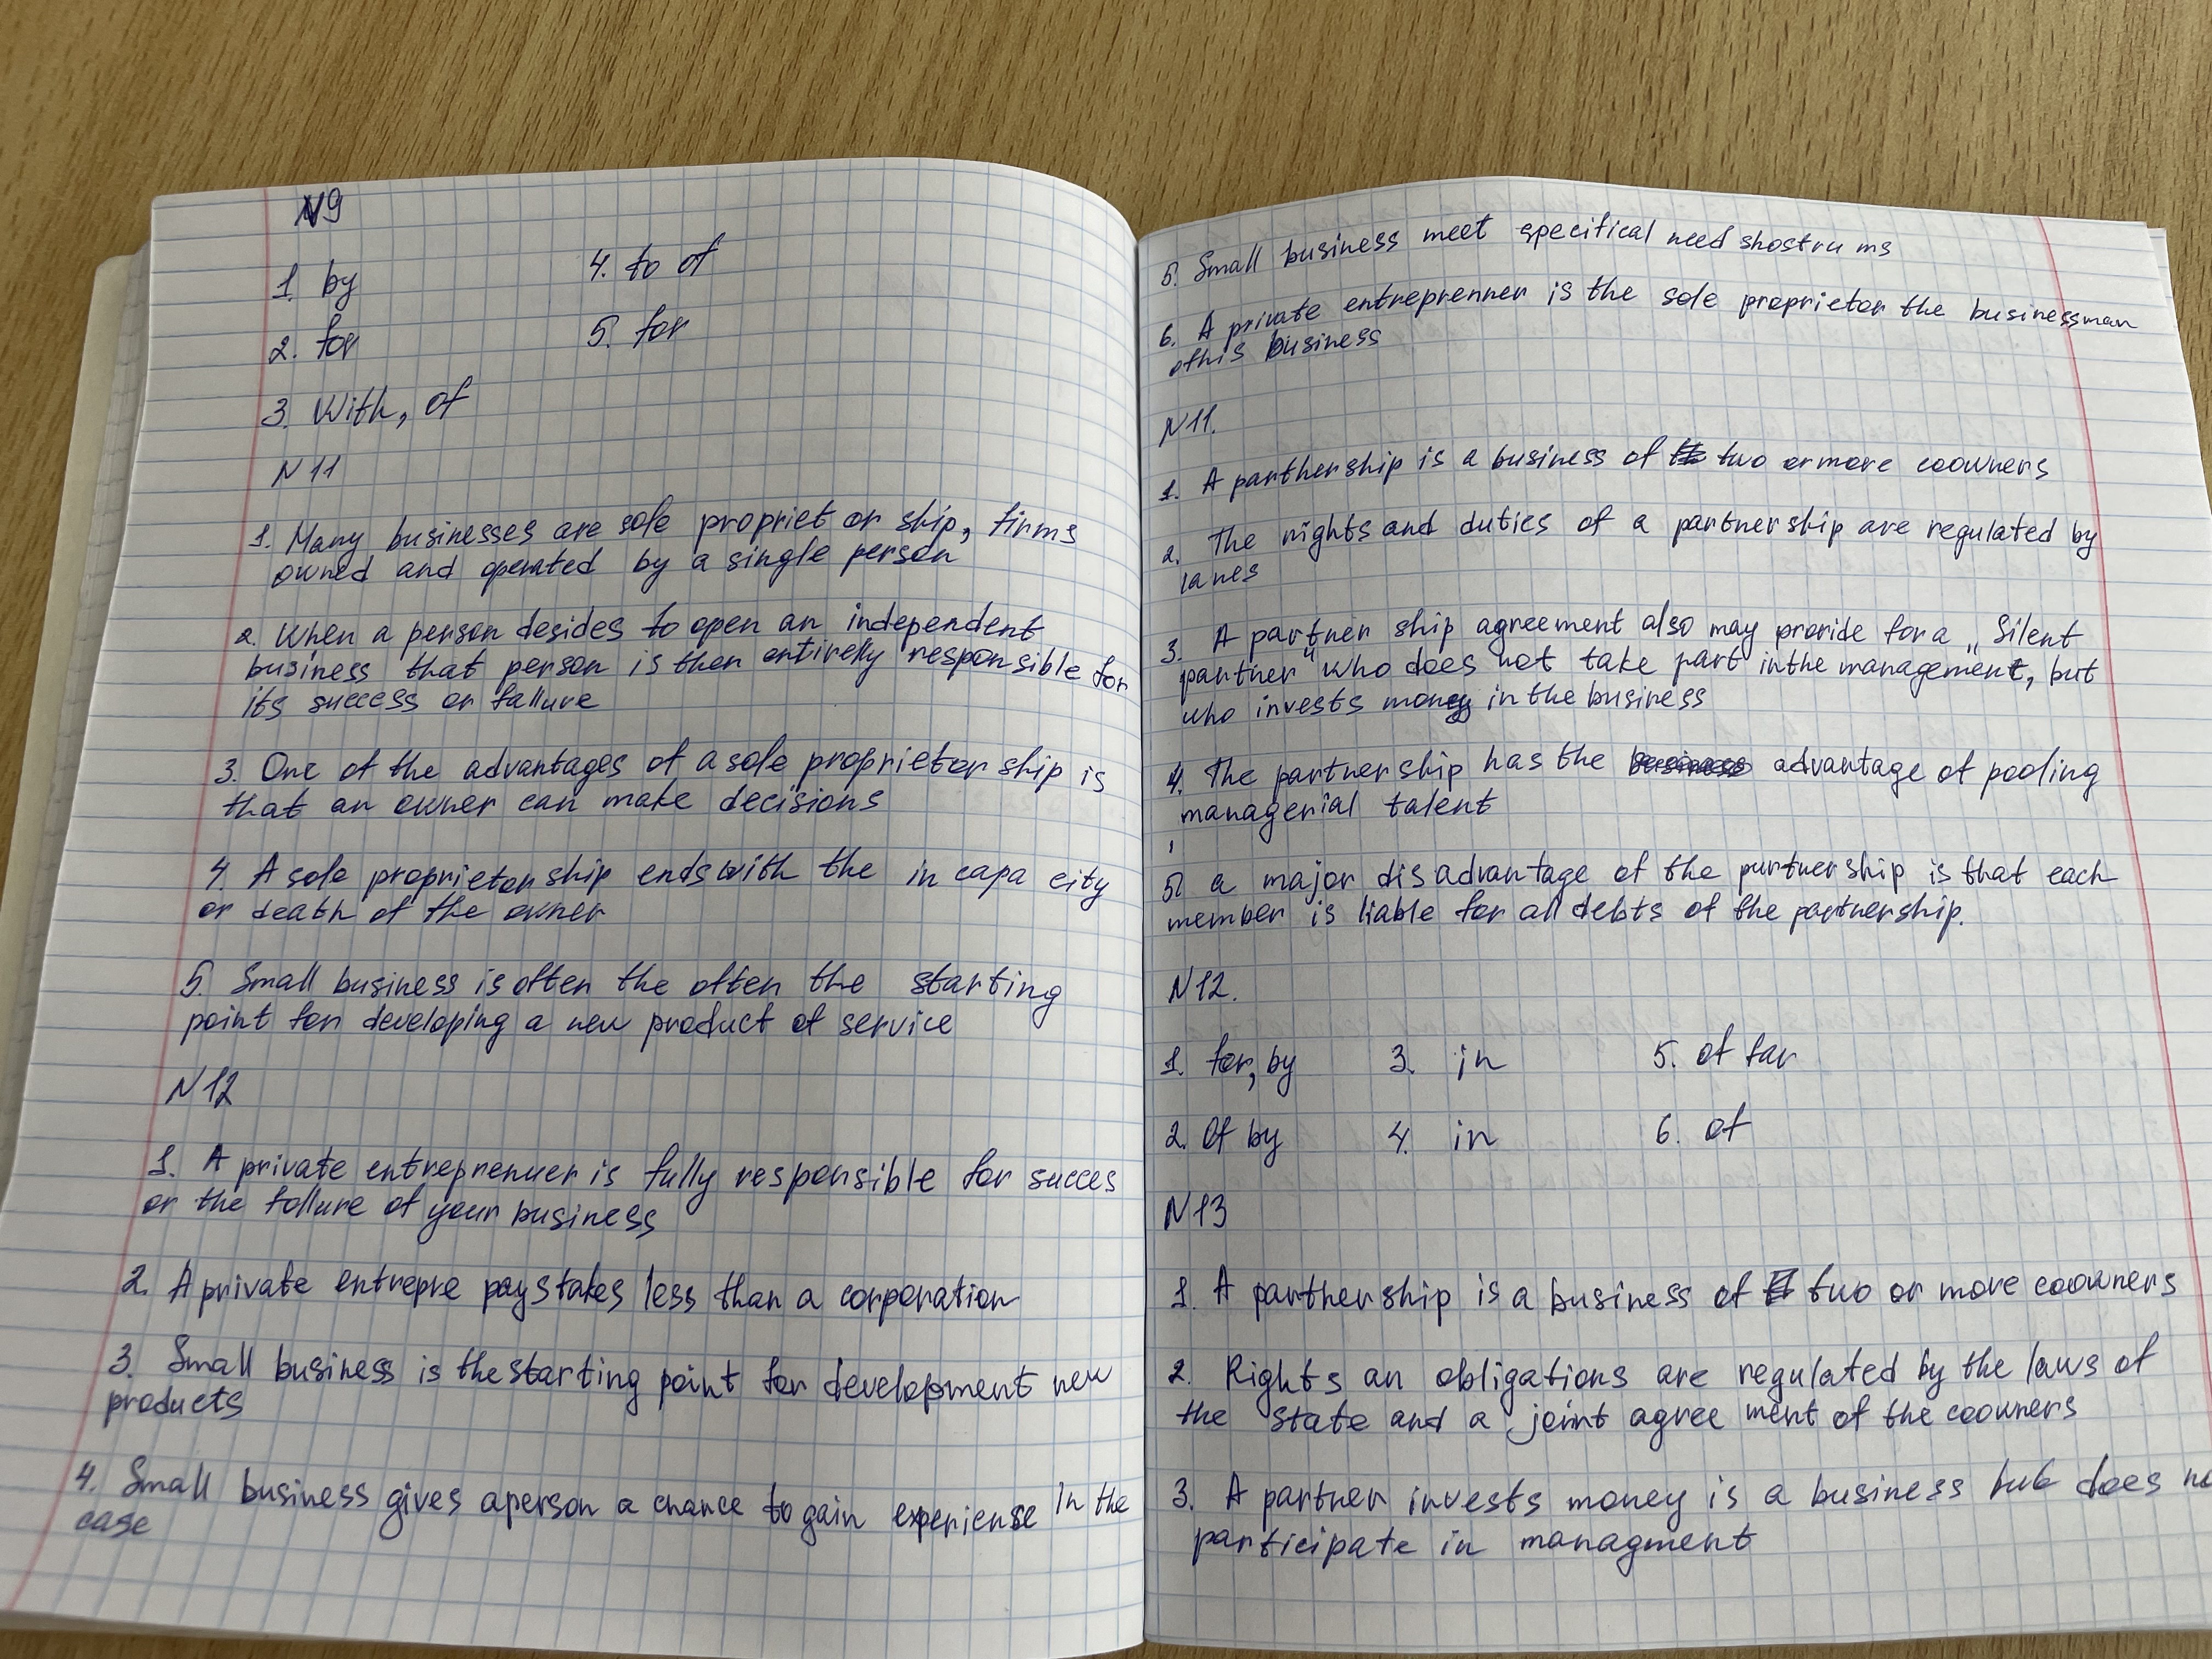 N9
1. by
4. to of
2. for
5. for
3. With, of
N11
1. Many businesses are sole propriet or ship, firms
owned and operated by a single person
2. When a person desides to open an independent
business that person is then entirely responsible for
its success or fallure
3. One of the advantages of a sole proprietor ship is
that an owner can make decisions
4. A sole proprietor ship ends with the in capa city
or death of the owner
5. Small business is often the often the starting
point for developing a new product of service
N12
1. A private entreprenuer is fully responsible for succes
or the follure of your business
2. A private entrepre pays takes less than a corporation
3. Small business is the starting point for development new
products
4. Small business gives a person a chance to gain experiense in the
case
5. Small business meet specifical need shostru ms
6. A private entreprenner is the sole proprietor the businessman
othis business
N11.
1. A parthership is a business of two or more coowners
2. The rights and duties of a partner ship are regulated by
lanes
3. A partner ship agreement also may provide for a „Silent
partner" who does not take part in the management, but
who invests money in the business
4. The partner ship has the advantage of pooling
managerial talent
5. a major dis advantage of the purtner ship is that each
member is liable for all debts of the partnership.
N12.
1. for, by
3. in
5. of far
2. Of by
4. in
6. of
N13
1. A parthership is a business of two or more coowners
2. Rights an obligations are regulated by the laws of
the state and a joint agree ment of the coowners
3. A partner invests money is a business but does
participate in managment